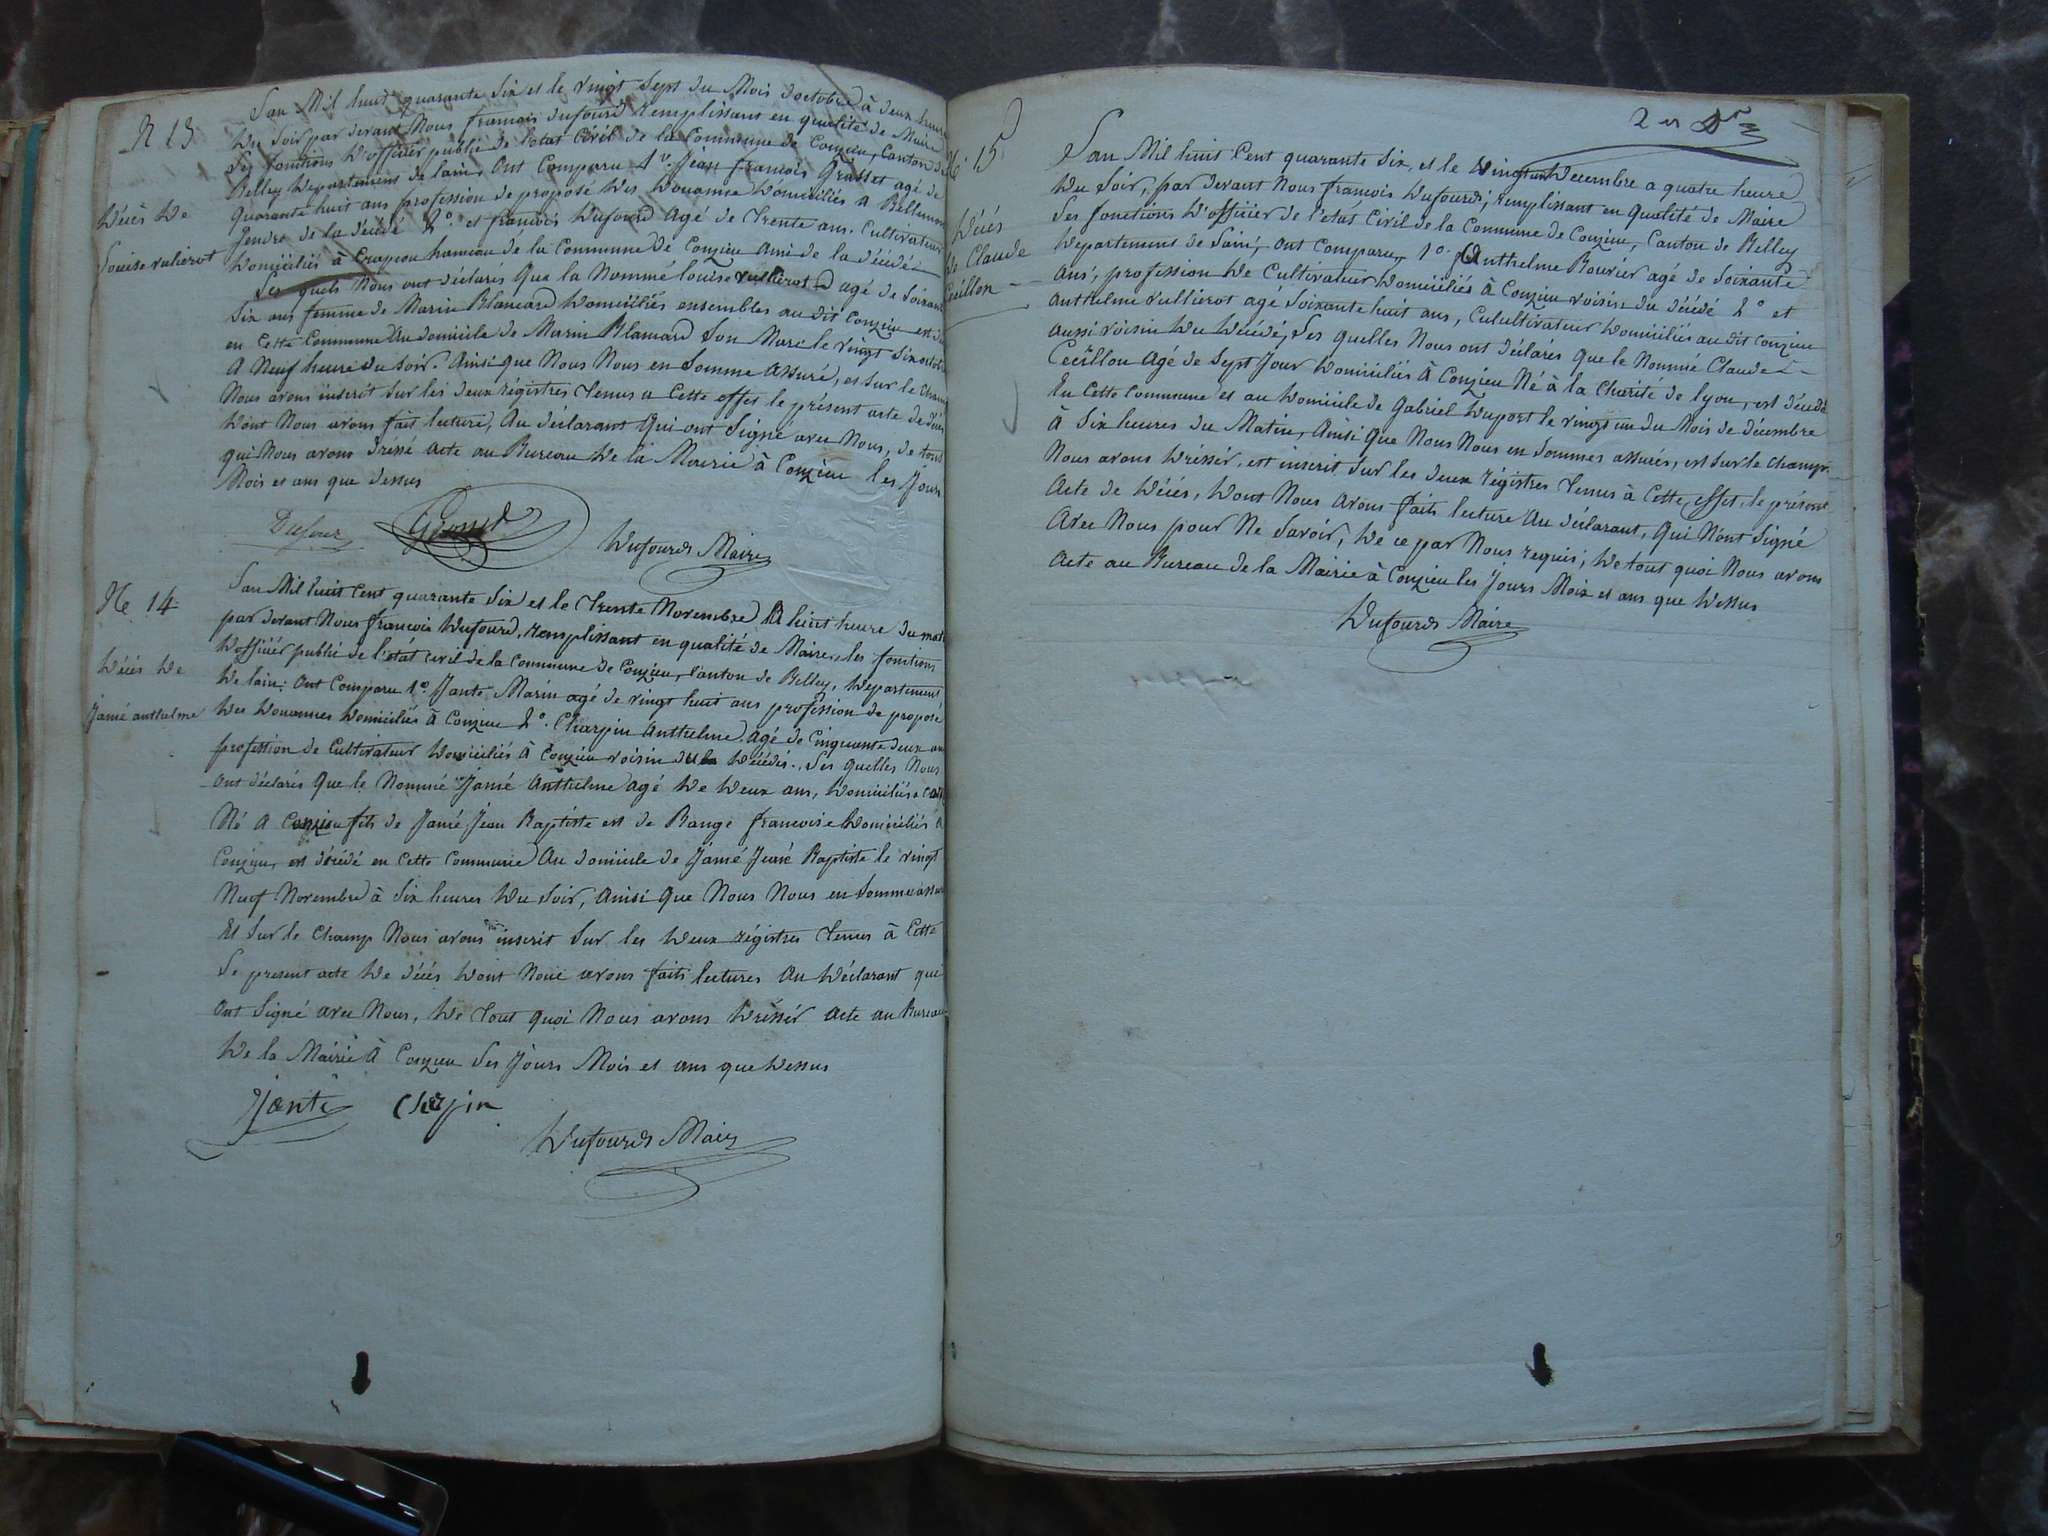 N 13
Décès De
Louise vulierot
Lan Mil huit quarante Six et le vingt Sept du Mois d'octobre à deux heure
Du Soir par devant Nous francois dufourd remplissant en qualité de Maire
Les fonctions D'officier public de l'état Civil de la Commune de Conzieu, Canton de
Belley Département de lain, Ont Comparu 1º Jean francois Grasset agé de
quarante huit ans profession de préposé Des Douanne Domiciliés à
Gendre de la décédé 2º et francois Dufourd Agé de Trente ans, Cultivateur
Domiciliés à Crapeou hameau de la Commune de Conzieu ami de la décédé
Les quels Nous ont déclarés Que la Nommé louise vullierot agé de Soixante
Six ans femme de Marin Blancard Domiciliés ensembles au dit Conzieu est
en Cette Commune Au domicile de Marin Blancard Son Mari le vingt Six octobre
A Neuf heure du Soir. Ainsi que Nous Nous en Somme Assuré, et Sur le Champ
Nous avons inscrit Sur les deux régistres Tenus a Cette effet le présent acte de décés
Dont Nous avons fait lecture, Au déclarant Qui ont Signé avec Nous, de tout
qui Nous avons dréssé acte au Bureau De la Mairie à Conzieu les Jours
Mois et ans que dessus
Dufour Grasset
Dufourd Maire
Ne 14
Décés De
Jamé anthelme
Lan Mil huit Cent quarante Six et le Trente Novembre A huit heure du
par devant Nous francois Dufourd, remplissant en qualité de Maire, les fonctions
D'officier public de l'état civil de la Commune de Conzieu, Canton de Belley, Département
De lain; Ont Comparu 1º Jante Marin agé de vingt huit ans profession de préposé
Des Douannes Domiciliés à Conzieu 2º Charpin Anthelme Agé de Cinquante deux ans
profession de Cultivateur Domiciliés à Conzieu voisin du Décédés, Les quelles Nous
Ont déclarés Que le Nommé Jamé Anthelme agé De Deux ans, Domiciliés a
Né A Conzieu fils de Jamé Jean Baptiste est de Range francoise Domiciliés a
Conzieu, est décédé en Cette Commune Au domicile de Jamé Jean Baptiste le vingt
Neuf Novembre à Six heures Du Soir, Ainsi Que Nous Nous en Somme
Et Sur le Champ Nous avons inscrit Sur les Deux régistres Tenus à Cette
Le present acte De décés Dont Nous avons faits lectures Au Déclarant qui
Ont Signé avec Nous, De Tout quoi Nous avons Drésser acte au Bureau
De la Mairie à Conzieu Les Jours Mois et ans que Dessus
Jante Charpin
Dufourd Maire
2 et Der
Nº 15
Décés
De Claude
Cecillon
Lan Mil huit Cent quarante Six, et le vingt un Decembre a quatre heure
Du Soir, par devant Nous francois Dufourd, remplissant en Qualité de Maire
Les fonctions D'officier de l'état Civil de la Commune de Conzieu, Canton de Belley
Département de Lain, Ont Comparu 1º Anthelme Bouvier agé de Soixante
ans, profession De Cultivateur Domiciliés à Conzieu voisin du décédé 2º et
Anthelme vullierot agé Soixante huit ans, Culultivateur Domiciliés au dit Conzieu
aussi voisin Du Décédé, Les quelles Nous ont déclarés Que le Nommé Claude
Cecillon Agé de Sept Jour Domiciliés à Conzieu Né à la Charité de lyon, est décédé
En Cette Commune et au Domicile de Gabriel Duport le vingt un du Mois de décembre
à Six heures du Matin, Ainsi Que Nous Nous en Sommes assurés, est Sur le champ
Nous avons Drésser, est inscrit Sur les deux régistres Tenus à Cette effet, le présent
Acte de Décés, Dont Nous Avons faits lecture Au déclarant, Qui N'ont Signé
Avec Nous pour Ne Savoir, De ce par Nous requis; De tout quoi Nous avons
Acte au Bureau de la Mairie à Conzieu les Jours Mois et ans que Dessus
Dufourd Maire